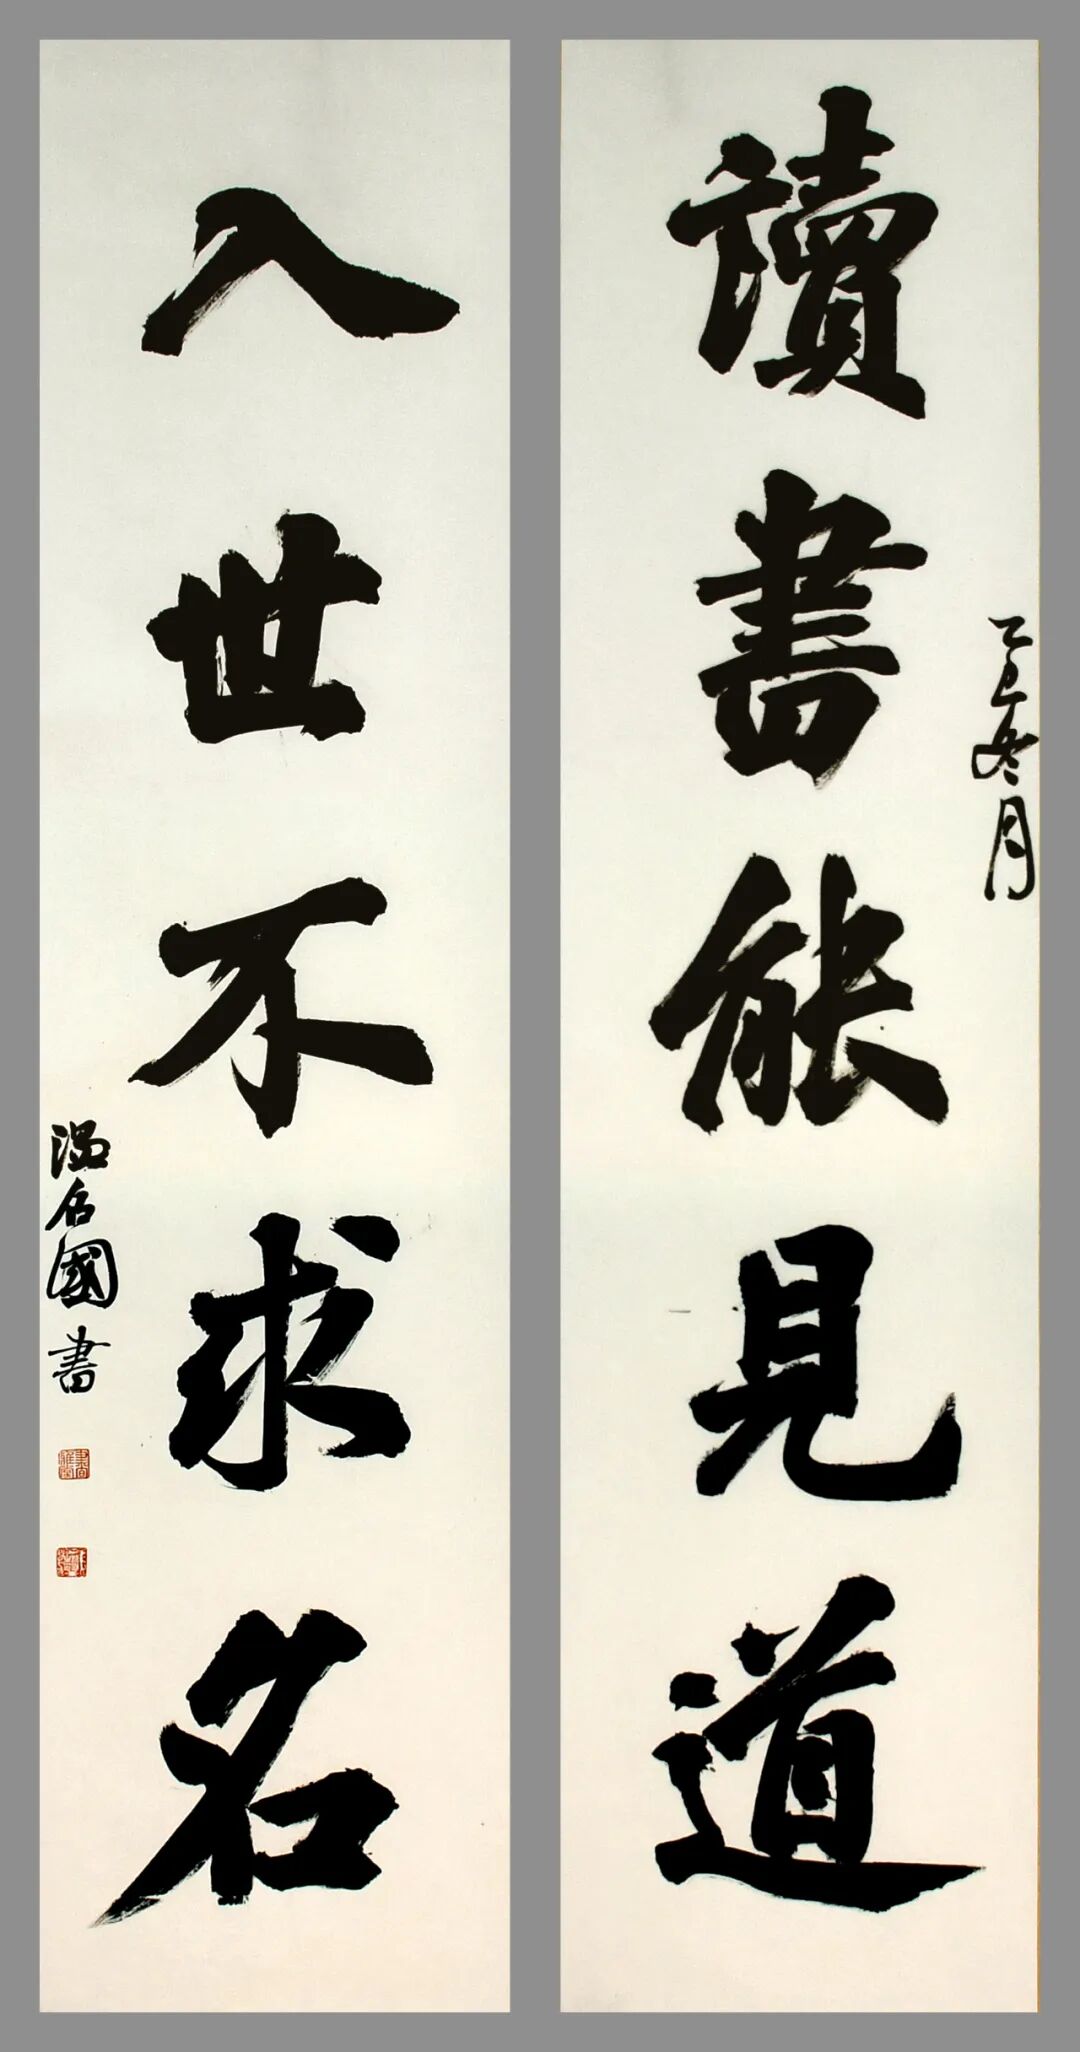 讀書能見道
乙巳冬月
入世不求名
温名國書